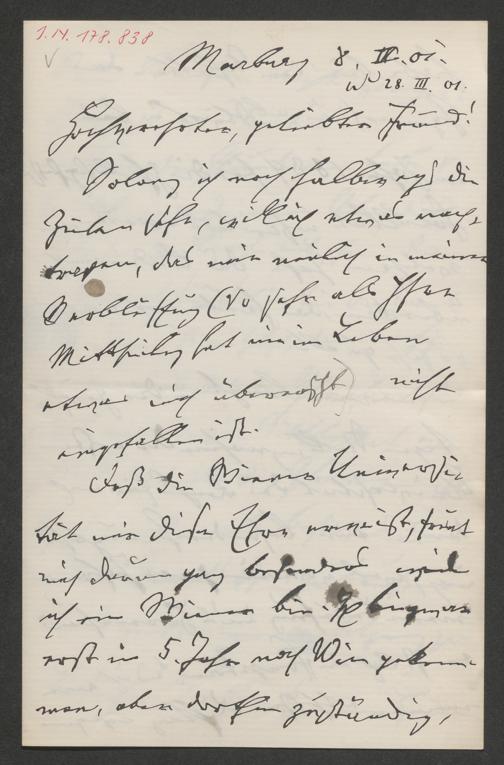 I.N. 178.838
Marburg 8. IV. 01.
28. III. 01.
Hochverehrter, geliebter Freund!
Solang ich noch halbwegs die
Zeilen sehe, will ich etwas nach-
tragen, das mir neulich in meiner
Verblüffung (so sehr als Ihre
Mittheilung hat mich im Leben
etwas noch überrascht) nicht
eingefallen ist.
Daß die Wiener Universi-
tät mir diese Ehre erweist, freut
mich darum ganz besonders weil
ich ein Wiener bin. Ich bin zwar
erst im 5. Jahr nach Wien gekom-
men, aber dorthin zuständig,